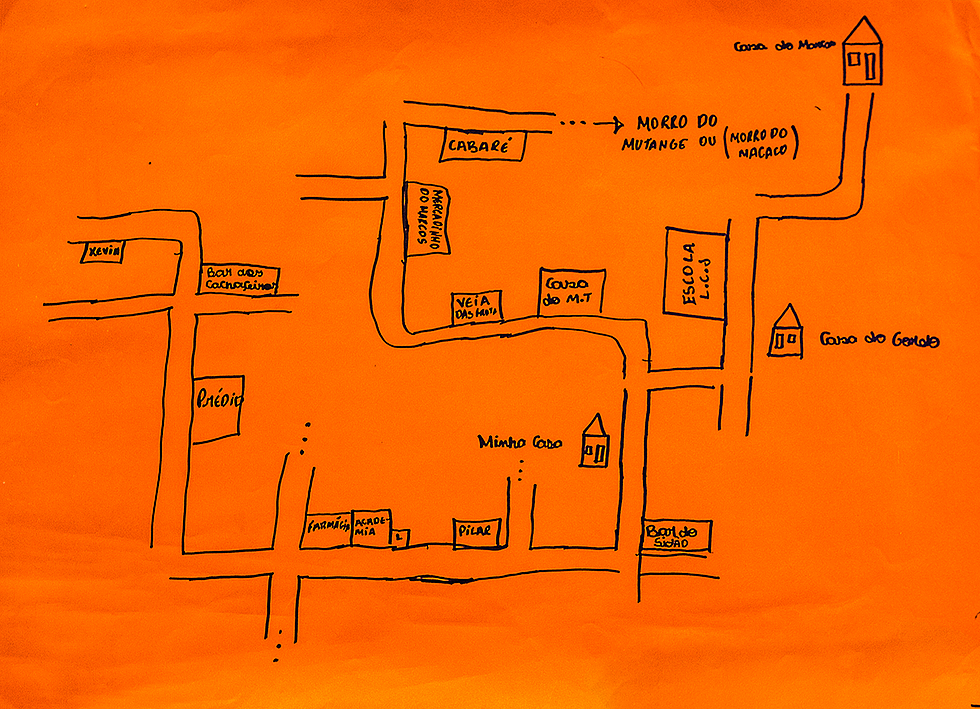 Casa do Marcos
MORRO DO
MUTANGE OU (MORRO DO
MACACO)
CABARÉ
MERCADINHO
DO MARCOS
KEVIN
Bar dos
Cachaceiros
VEIA
DAS FRUTA
Casa
do M.T
ESCOLA
L.C.J
Casa do Geraldo
PRÉDIO
Minha Casa
FARMÁCIA
ACADE-
MIA
PILAR
Bar do
SIDÃO